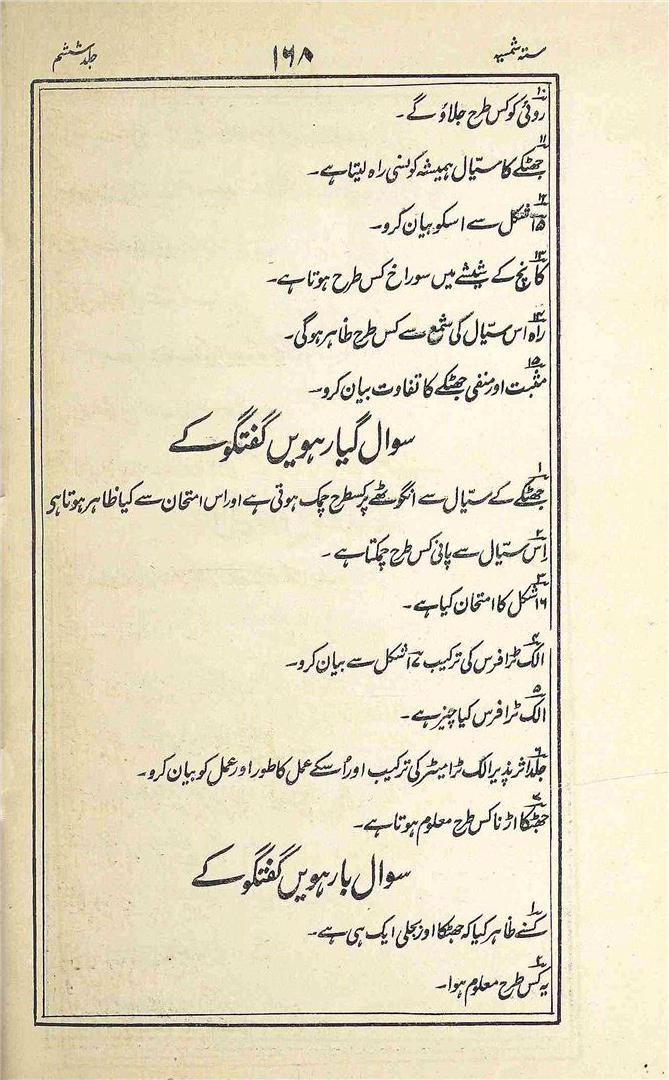 ستہ شمسیہ ۱۶۸ جلد ششم
۱۰ روئی کو کس طرح جلاؤ گے۔
۱۱ جھٹکے کا سیّال ہمیشہ کونسی راہ لیتا ہے۔
۱۲ ۱۵ شکل سے اسکو بیان کرو۔
۱۳ کانچ کے شیشے میں سوراخ کس طرح ہوتا ہے۔
۱۴ راہ اس سیّال کی شمع سے کس طرح ظاہر ہوگی۔
۱۵ مثبت اور منفی جھٹکے کا تفاوت بیان کرو۔
سوال گیارہویں گفتگو کے
۱ جھٹکے کے سیّال سے انگوٹھے پر کسطرح چمک ہوتی ہے اور اس امتحان سے کیا ظاہر ہوتا ہی
۲ اِس سیّال سے پانی کس طرح چمکتا ہے۔
۳ ۱۶ شکل کا امتحان کیا ہے۔
۴ الک ٹرافرس کی ترکیب ۱۷ شکل سے بیان کرو۔
۵ الک ٹرافرس کیا چیز ہے۔
۶ جلد اثر پذیر الک ٹرامیٹر کی ترکیب اور اُسکے عمل کا طور اور عمل کو بیان کرو۔
۷ جھٹکا اڑنا کس طرح معلوم ہوتا ہے۔
سوال بارہویں گفتگو کے
۱ کسنے ظاہر کیا کہ جھٹکا اور بجلی ایک ہی ہے۔
۲ یہ کس طرح معلوم ہوا۔